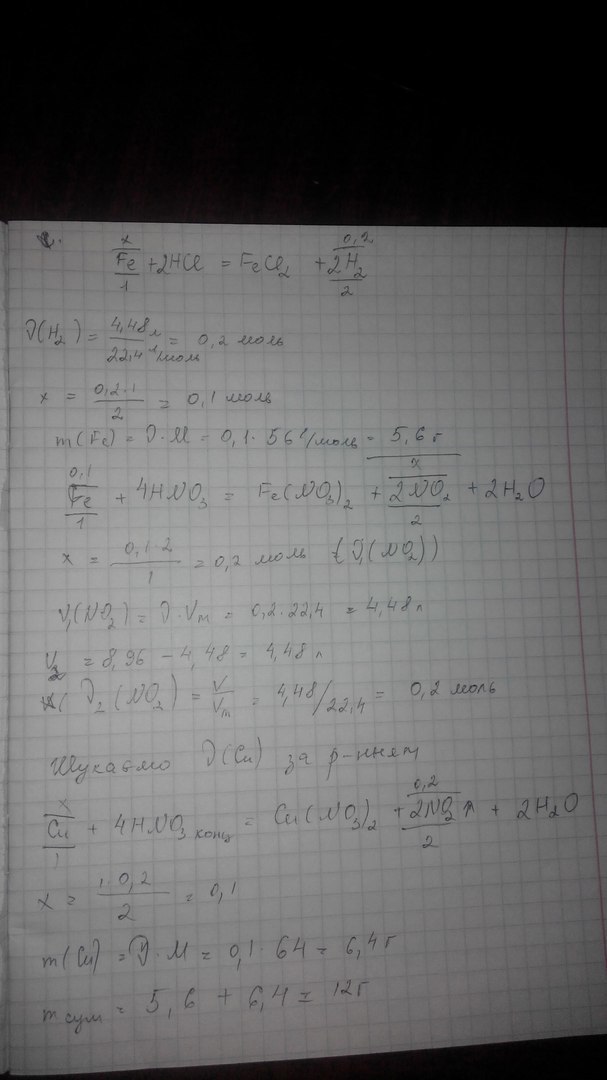 2.
x 0,2
Fe + 2HCl = FeCl₂ + 2H₂
1 2
ν(H₂) = 4,48 л / 22,4 л/моль = 0,2 моль
x = 0,2·1 / 2 = 0,1 моль
m(Fe) = ν·M = 0,1·56 г/моль = 5,6 г
0,1 x
Fe + 4HNO₃ = Fe(NO₃)₂ + 2NO₂ + 2H₂O
1 2
x = 0,1·2 / 1 = 0,2 моль (ν₁(NO₂))
V₁(NO₂) = ν·Vm = 0,2·22,4 = 4,48 л
V₂ = 8,96 − 4,48 = 4,48 л
ν₂(NO₂) = V / Vm = 4,48/22,4 = 0,2 моль
Шукаємо ν(Cu) за р-нням
x 0,2
Cu + 4HNO₃ конц = Cu(NO₃)₂ + 2NO₂↑ + 2H₂O
1 2
x = 1·0,2 / 2 = 0,1
m(Cu) = ν·M = 0,1·64 = 6,4 г
m сум = 5,6 + 6,4 = 12 г